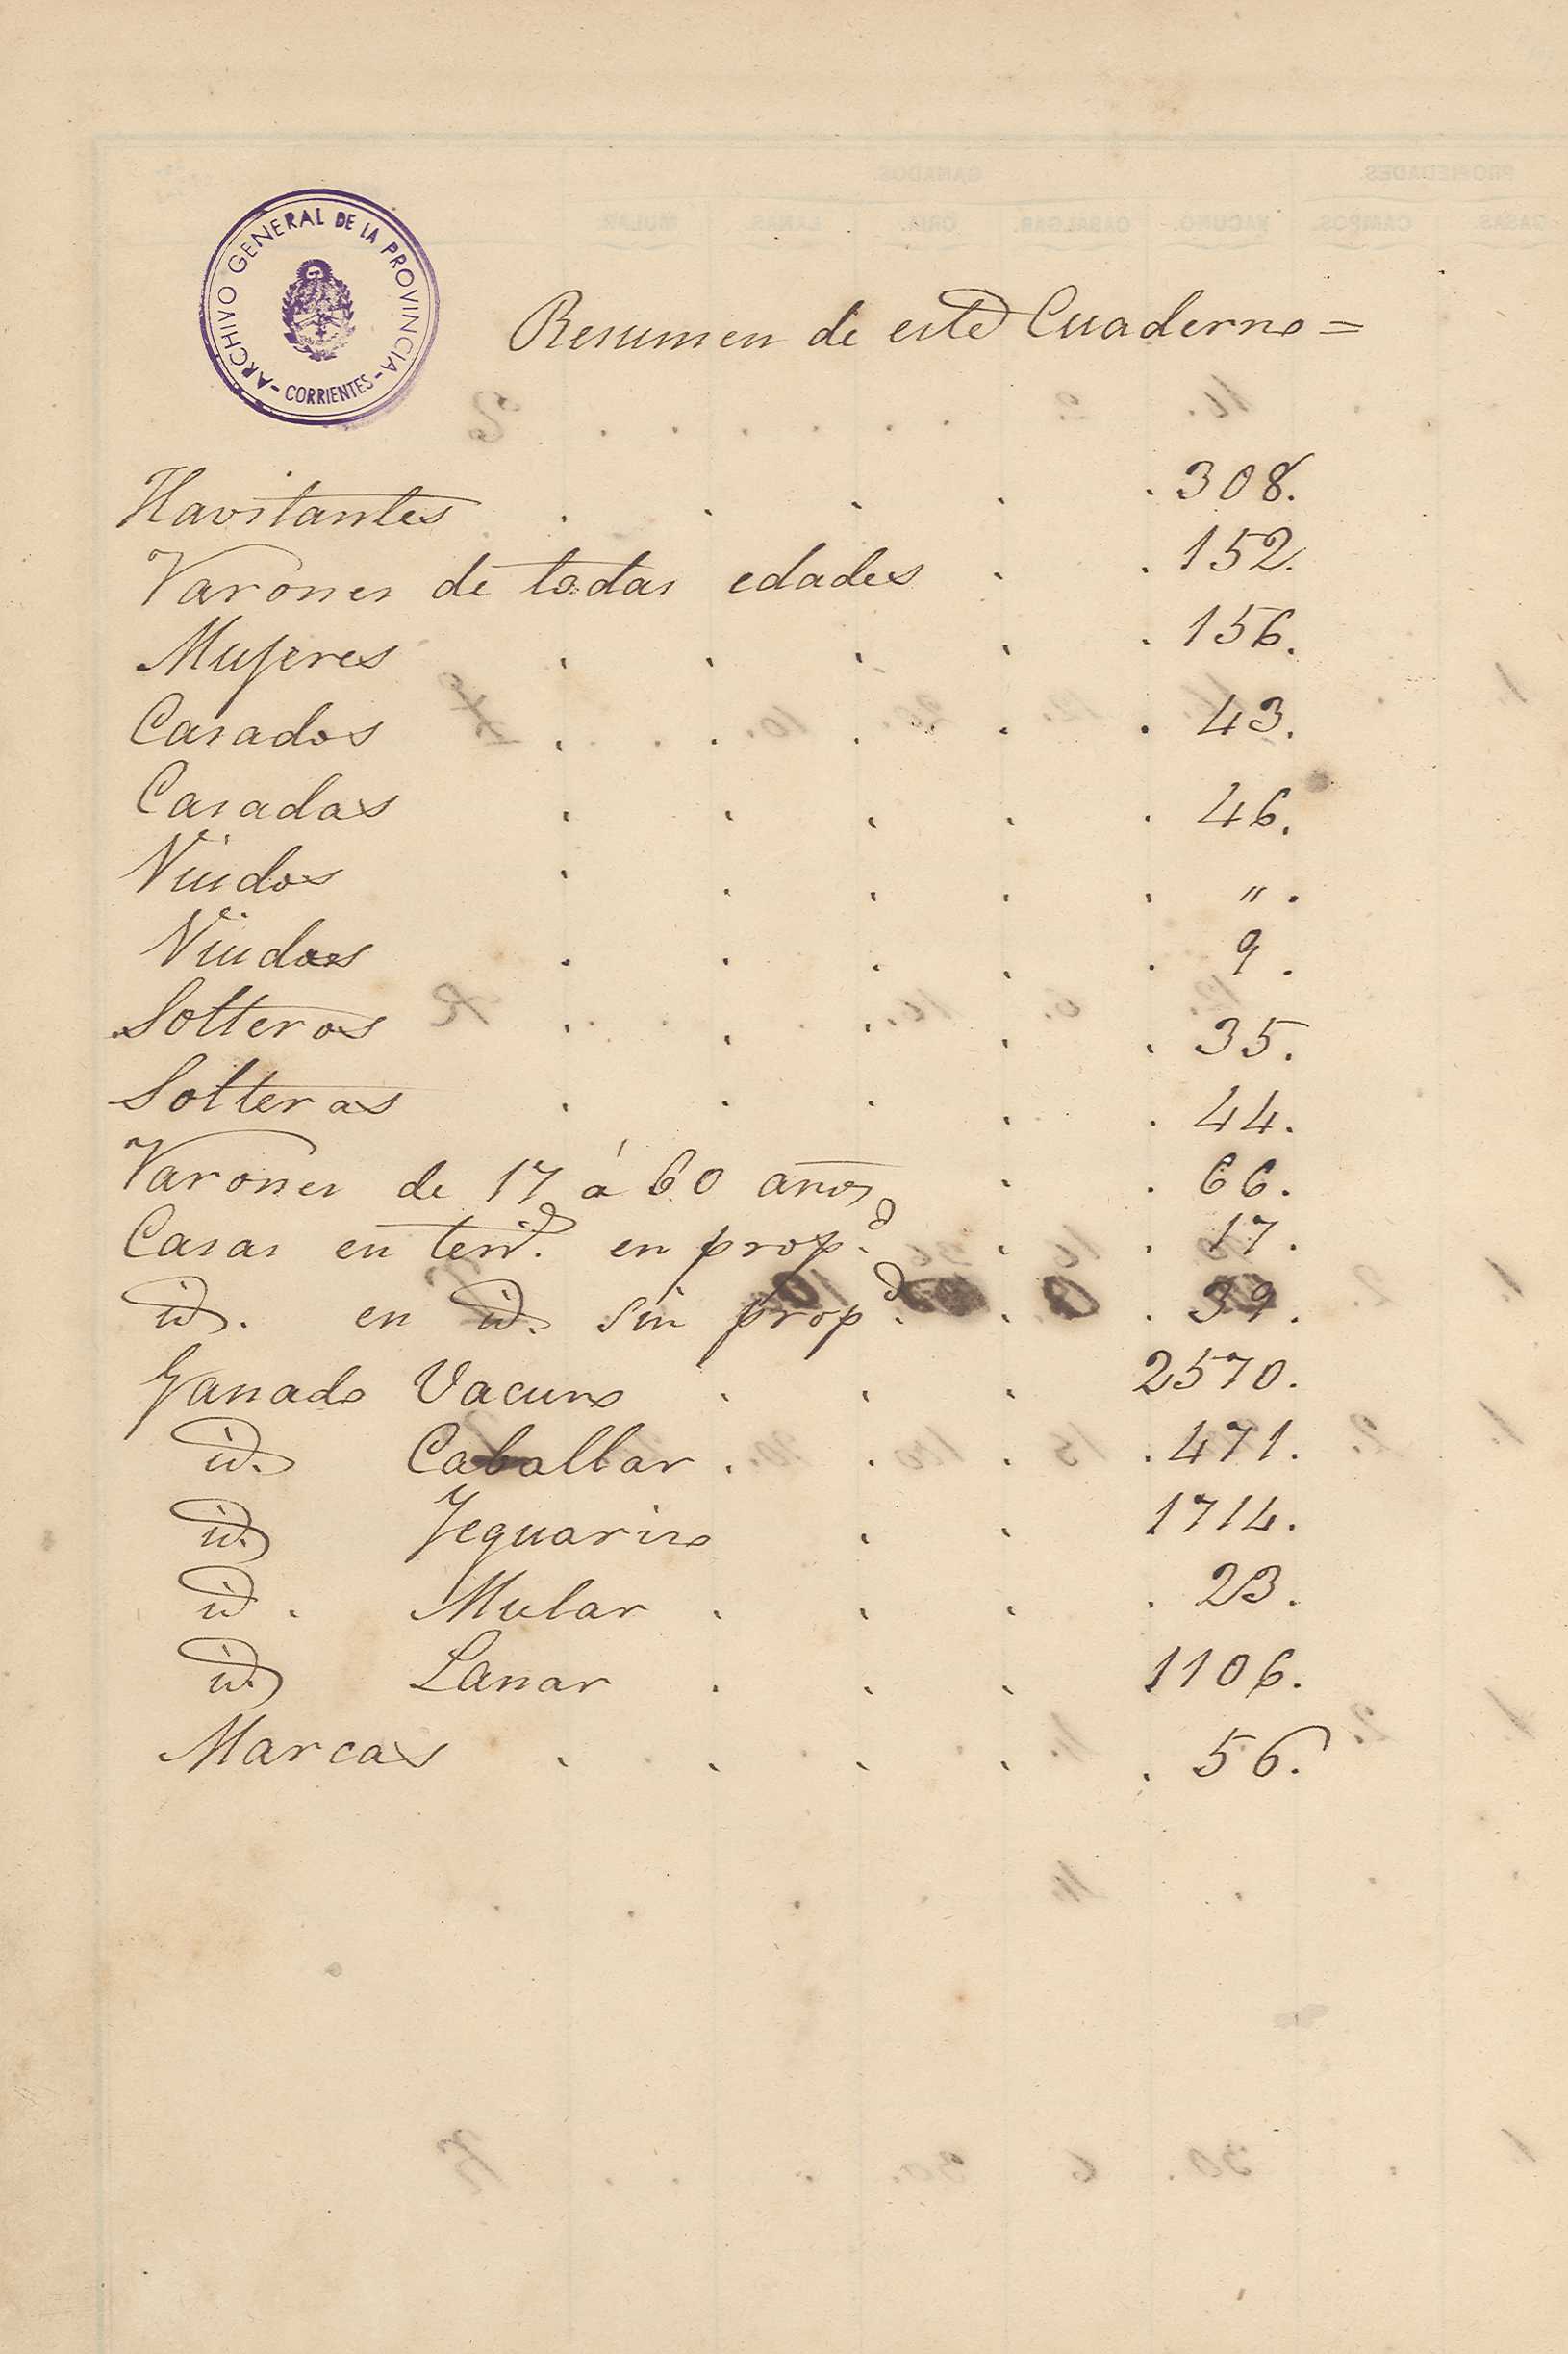 ARCHIVO GENERAL DE LA PROVINCIA
- CORRIENTES -
Resumen de este Cuaderno =
Havitantes . . . . . 308.
Varones de todas edades . . 152.
Mujeres . . . . . 156.
Casados . . . . . 43.
Casadas . . . . . 46.
Viudos . . . . . " .
Viudas . . . . . 9 .
Solteros . . . . . 35.
Solteras . . . . . 44.
Varones de 17 á 60 años . . 66.
Casas en terrd. en propd. . . 17.
id. en id. sin propd. . . 39.
Ganado Vacuno . . . 2570.
id. Caballar . . . . 471.
id. Yeguarizo . . 1714.
id. Mular . . . . 23.
id. Lanar . . . 1106.
Marcas . . . . . 56.